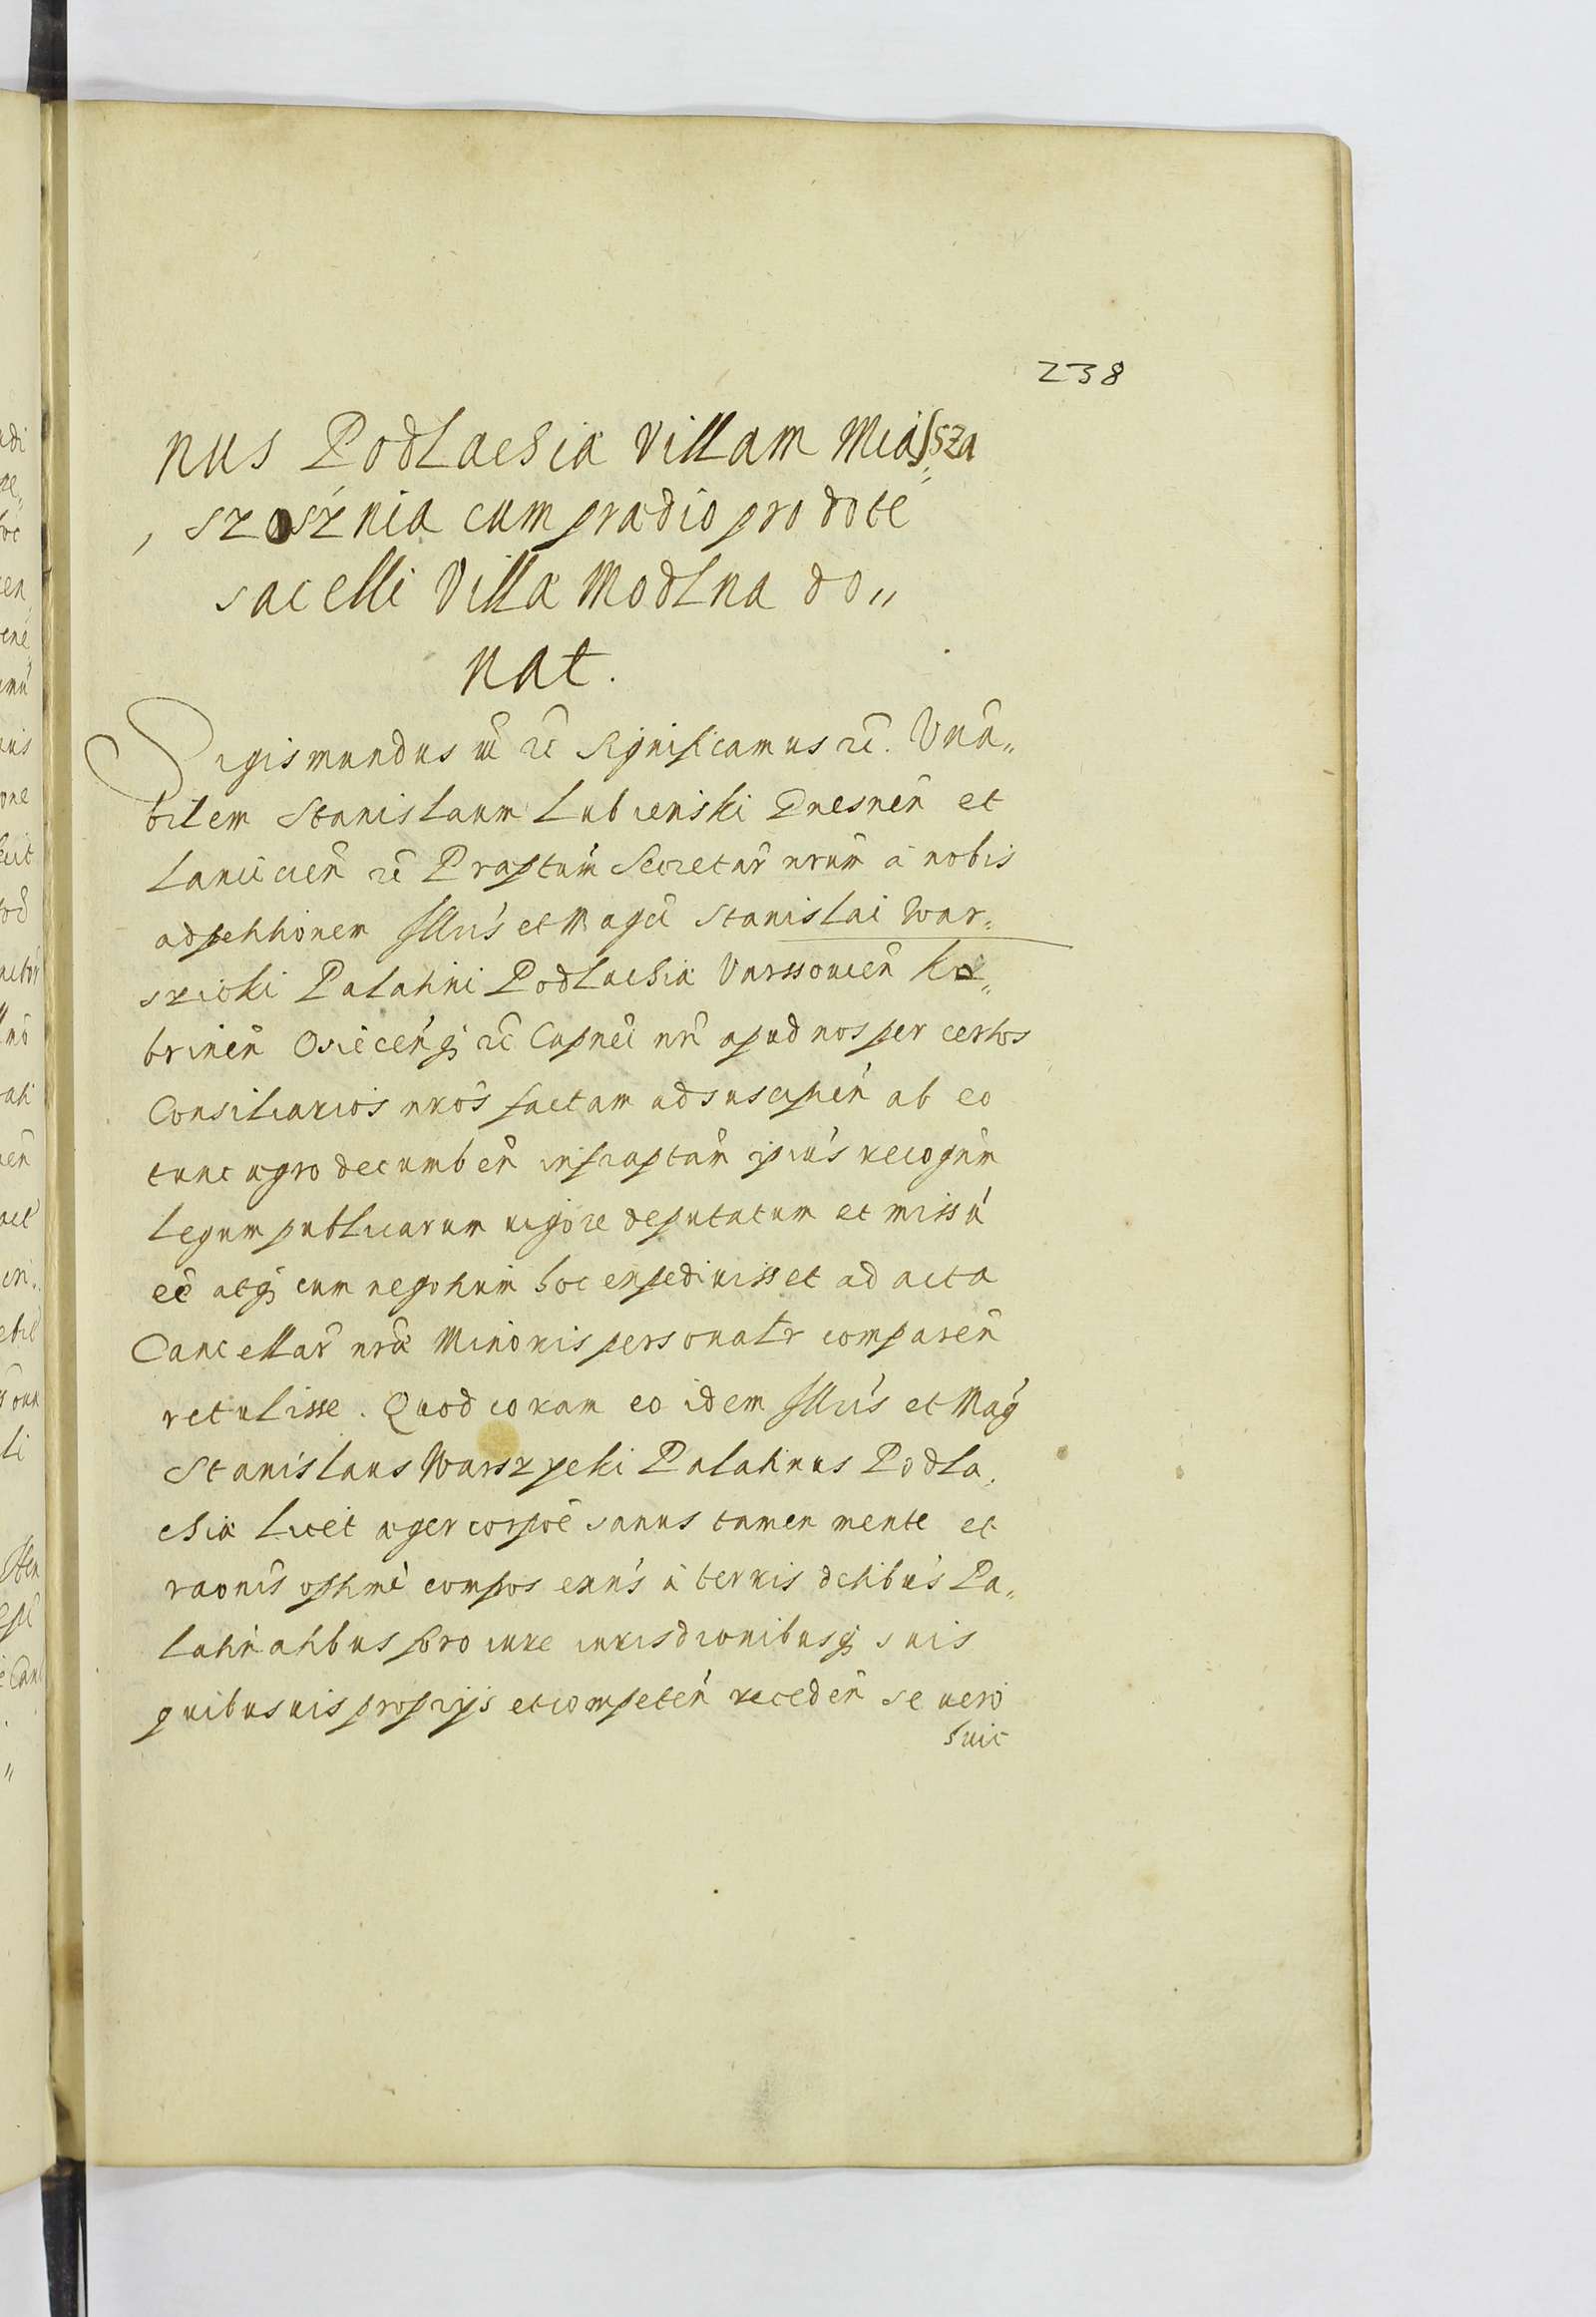 238
nus Podlachiæ villam Miassza„
, szosznia cum prædio pro dote
sacelli Villæ Modlna do„
nat.
Sigismundus III rc̃ Significamus rc̃. Vnã„
bilem Stanislaum Lubienski Gnesneñ et
Lanicieñ rc̃ Præptum̃ Secretar̃ nrum̃ à nobis
ad petitionem Illris et Magci Stanislai War„
szicki Palatini Podlachiæ Varssouieñ Ko„
brineñ Osieceñq̃ rc̃ Capnei nrĩ apud nos per certos
Consiliarios nros̃ factam ad suscipieñ ab eo
tunc ægro decumbeñ infrascptam̃ ipius̃ recognm̃
legum publicarum uigore deputatum et missũ
eẽ atq̃ cum negotium̃ hoc expediuisset ad acta
Cancellar̃ nræ̃ Minoris personalr̃ compareñ
retulisse. Quod coram eo idem Illris et Mag̃
Stanislaus Warszycki Palatinus Podla„
chiæ licet æger corpoẽ sanus tamen mente et
raonis̃ optime compos exñs à terris dctibus̃ Pa„
latinatibus foro iure iurisdionibusq̃ suis
quibusuis proprijs et competeñ recedeñ se uero
huic